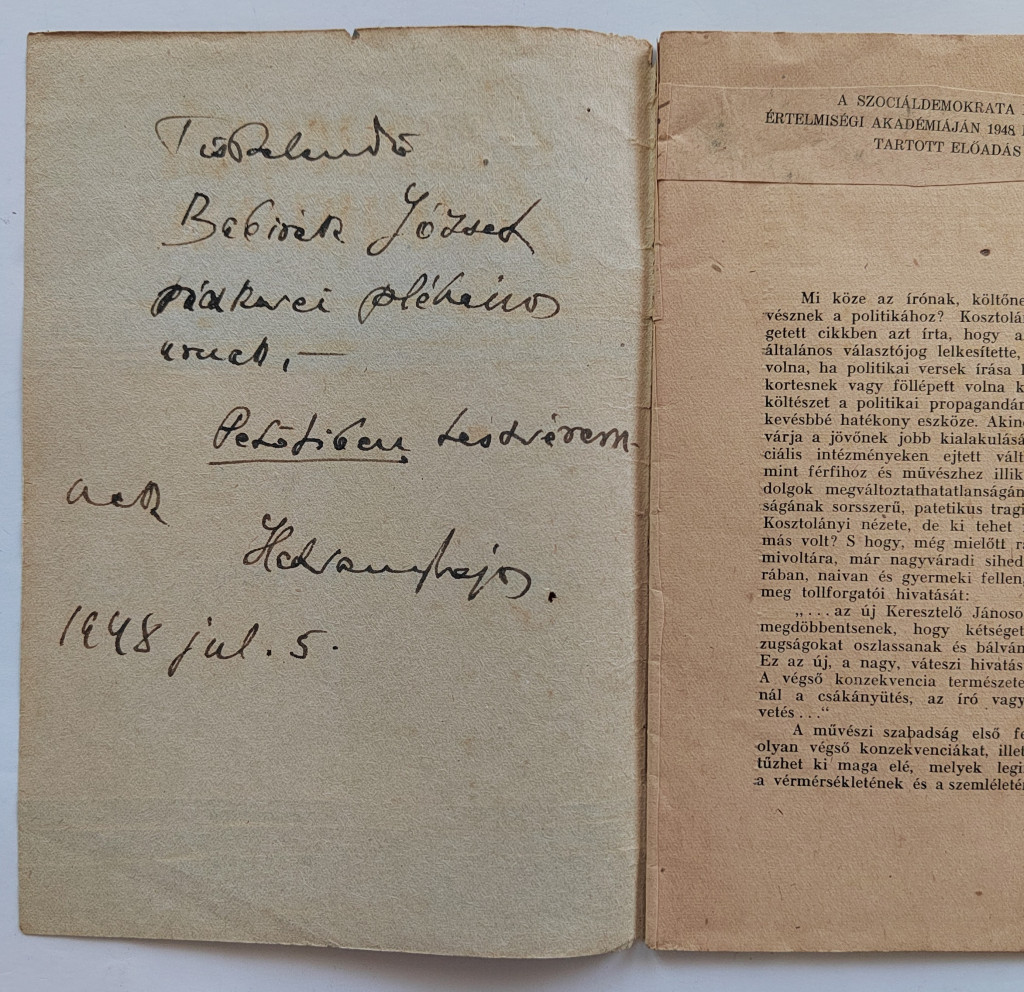 Tisztelendő
Babirák József
rádkarei plébános
úrnak, —
Petőfiben testvérem-
nek
Hatvany Lajos.
1948 jul. 5.
A SZOCIÁLDEMOKRATA
ÉRTELMISÉGI AKADÉMIÁJÁN 1948.
TARTOTT ELŐADÁS
Mi köze az írónak, költőne
vésznek a politikához? Kosztolá
getett cikkben azt írta, hogy a
általános választójog lelkesítette,
volna, ha politikai versek írása
kortesnek vagy föllépett volna k
költészet a politikai propagandá
kevésbbé hatékony eszköze. Akin
várja a jövőnek jobb kialakulásá
ciális intézményeken ejtett vált
mint férfihoz és művészhez illik
dolgok megváltoztathatatlanságán
ságának sorsszerű, patetikus tragi
Kosztolányi nézete, de ki tehet
más volt? S hogy, még mielőtt r
mivoltára, már nagyváradi sihed
rában, naivan és gyermeki fellen
meg tollforgatói hivatását:
„...az új Keresztelő Jánoso
megdöbbentsenek, hogy kétséget
zugságokat oszlassanak és bálván
Ez az új, a nagy, váteszi hivatás
A végső konzekvencia természete
nál a csákányütés, az író vagy
vetés..."
A művészi szabadság első fe
olyan végső konzekvenciákat, illet
tűzhet ki maga elé, melyek legi
a vérmérsékletének és a szemléleté